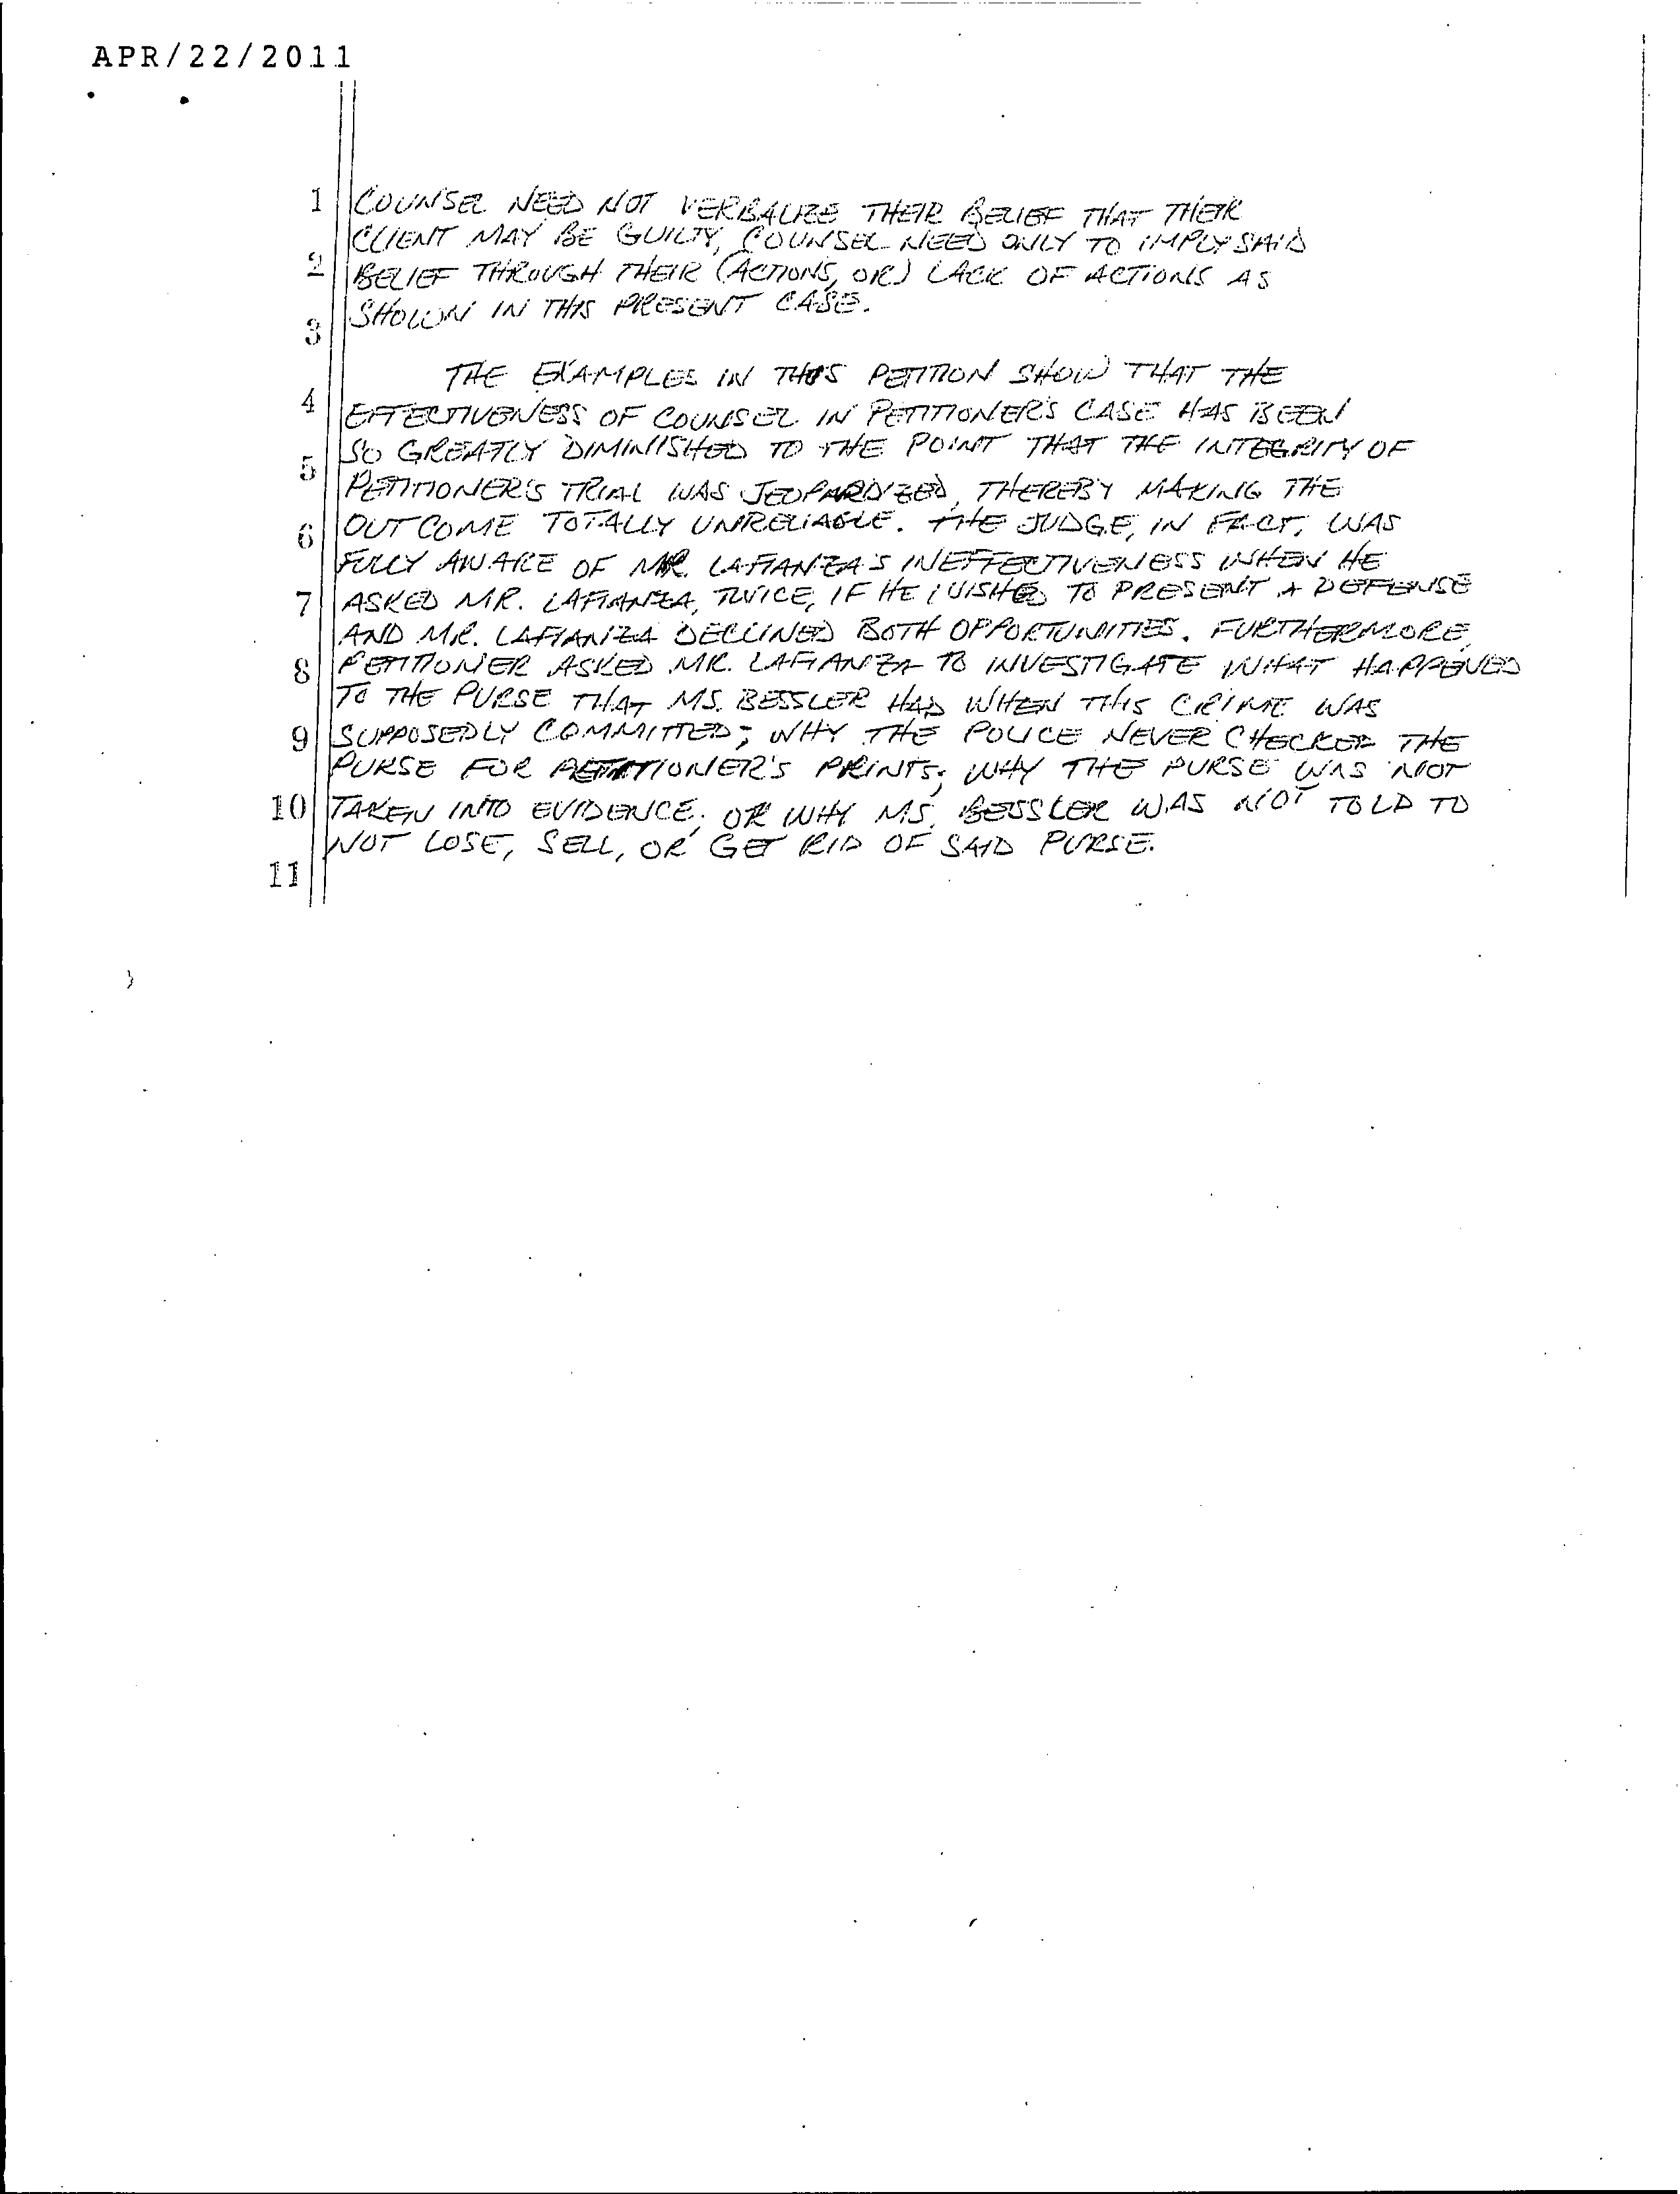 APR/22/2011
1 COUNSEL NEED NOT VERBALIZE THEIR BELIEF THAT THEIR
CLIENT MAY BE GUILTY, COUNSEL NEED ONLY TO IMPLY SAID
2 BELIEF THROUGH THEIR (ACTIONS, OR) LACK OF ACTIONS AS
SHOWN IN THIS PRESENT CASE.
3
THE EXAMPLES IN THIS PETITION SHOW THAT THE
4 EFFECTIVENESS OF COUNSEL IN PETITIONER'S CASE HAS BEEN
SO GREATLY DIMINISHED TO THE POINT THAT THE INTEGRITY OF
5 PETITIONER'S TRIAL WAS JEOPARDIZED, THEREBY MAKING THE
6 OUTCOME TOTALLY UNRELIABLE. THE JUDGE, IN FACT, WAS
FULLY AWARE OF MR. LAFIANZA'S INEFFECTIVENESS WHEN HE
7 ASKED MR. LAFIANZA, TWICE, IF HE WISHED TO PRESENT A DEFENSE
AND MR. LAFIANZA DECLINED BOTH OPPORTUNITIES. FURTHERMORE,
8 PETITIONER ASKED MR. LAFIANZA TO INVESTIGATE WHAT HAPPENED
TO THE PURSE THAT MS. BESSLER HAD WHEN THIS CRIME WAS
9 SUPPOSEDLY COMMITTED; WHY THE POLICE NEVER CHECKED THE
PURSE FOR PETITIONER'S PRINTS; WHY THE PURSE WAS NOT
10 TAKEN INTO EVIDENCE; OR WHY MS. BESSLER WAS NOT TOLD TO
NOT LOSE, SELL, OR GET RID OF SAID PURSE.
11